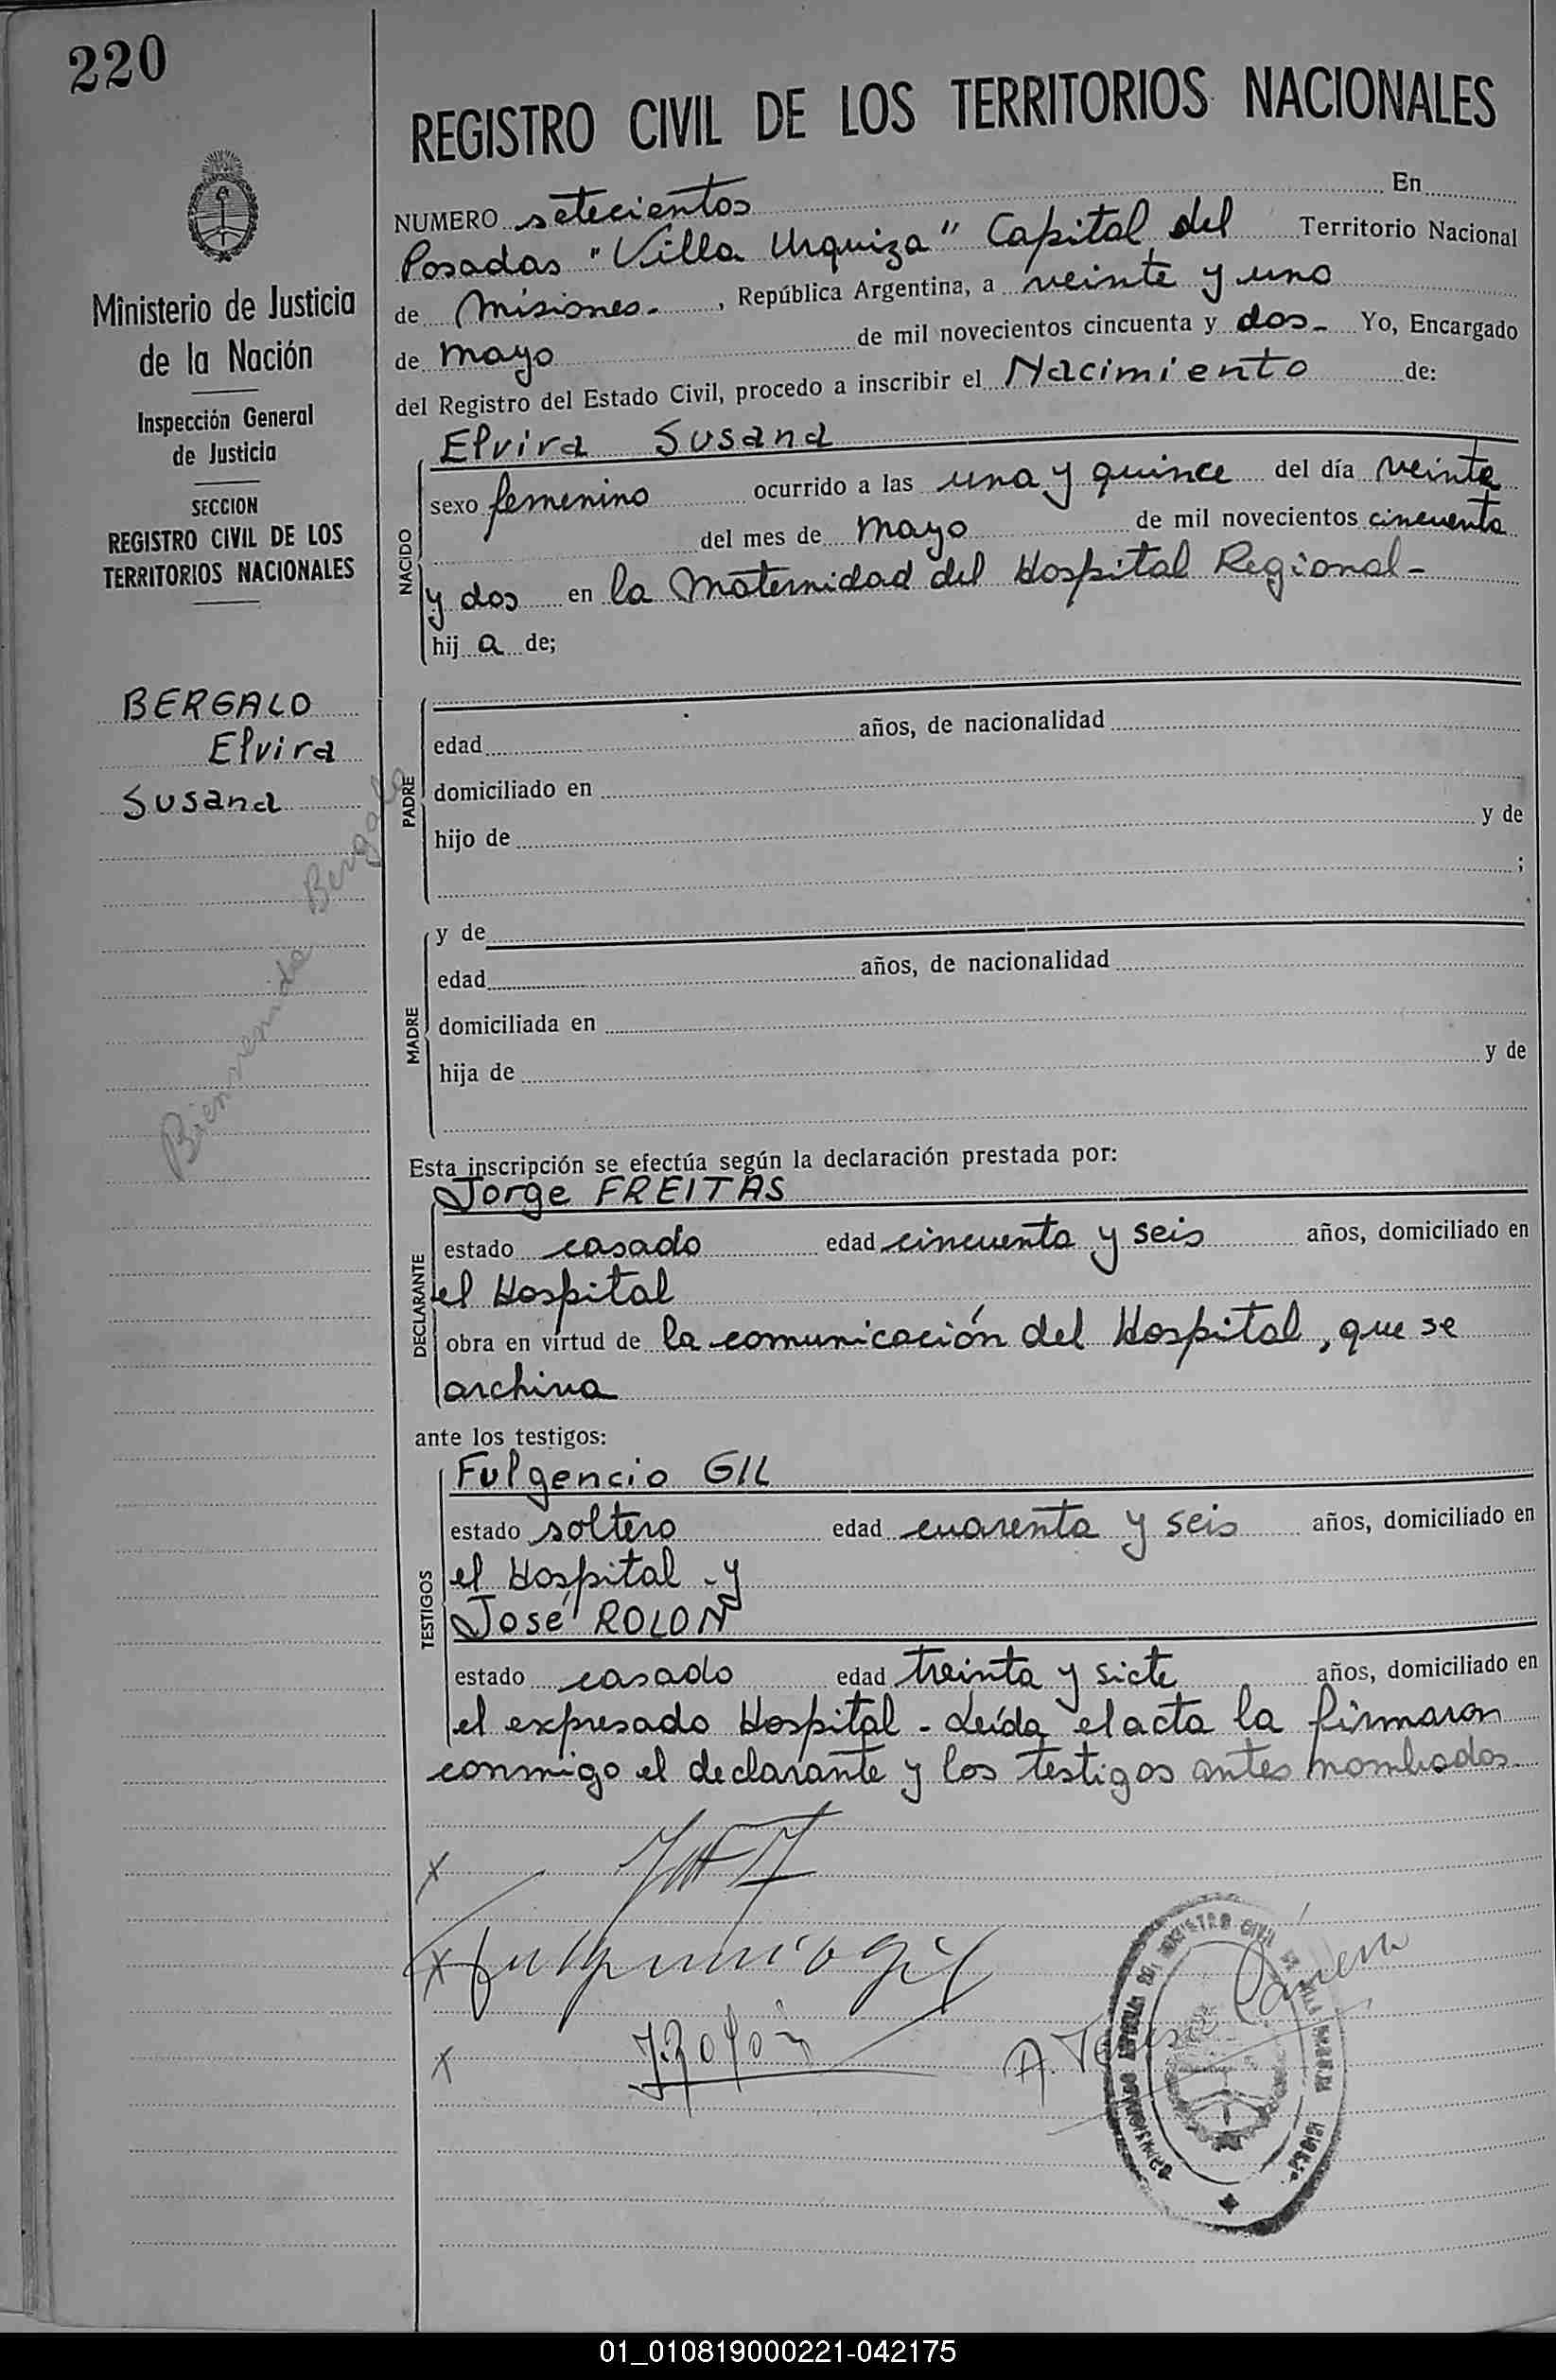 220
REGISTRO CIVIL DE LOS TERRITORIOS NACIONALES
Ministerio de Justicia
de la Nación
Inspección General
de Justicia
SECCION
REGISTRO CIVIL DE LOS
TERRITORIOS NACIONALES
BERGALO
Elvira
Susana
Bienvenida Bergalo
NUMERO setecientos En
Posadas "Villa Urquiza" Capital del Territorio Nacional
de Misiones.- , República Argentina, a veinte y uno
de mayo de mil novecientos cincuenta y dos- Yo, Encargado
del Registro del Estado Civil, procedo a inscribir el Nacimiento de:
NACIDO
Elvira Susana
sexo femenino ocurrido a las una y quince del día veinte
del mes de mayo de mil novecientos cincuenta
y dos en la Maternidad del Hospital Regional-
hij a de;
PADRE
edad años, de nacionalidad
domiciliado en
hijo de y de
;
MADRE
y de
edad años, de nacionalidad
domiciliada en
hija de y de
Esta inscripción se efectúa según la declaración prestada por:
DECLARANTE
Jorge FREITAS
estado casado edad cincuenta y seis años, domiciliado en
el Hospital
obra en virtud de la comunicación del Hospital, que se
archiva
ante los testigos:
TESTIGOS
Fulgencio GIL
estado soltero edad cuarenta y seis años, domiciliado en
el Hospital -y
José ROLON
estado casado edad treinta y siete años, domiciliado en
el expresado Hospital - Leída el acta la firmaron
conmigo el declarante y los testigos antes nombrados.
x
x Fulgencio Gil
x J. Rolón
01_010819000221-042175